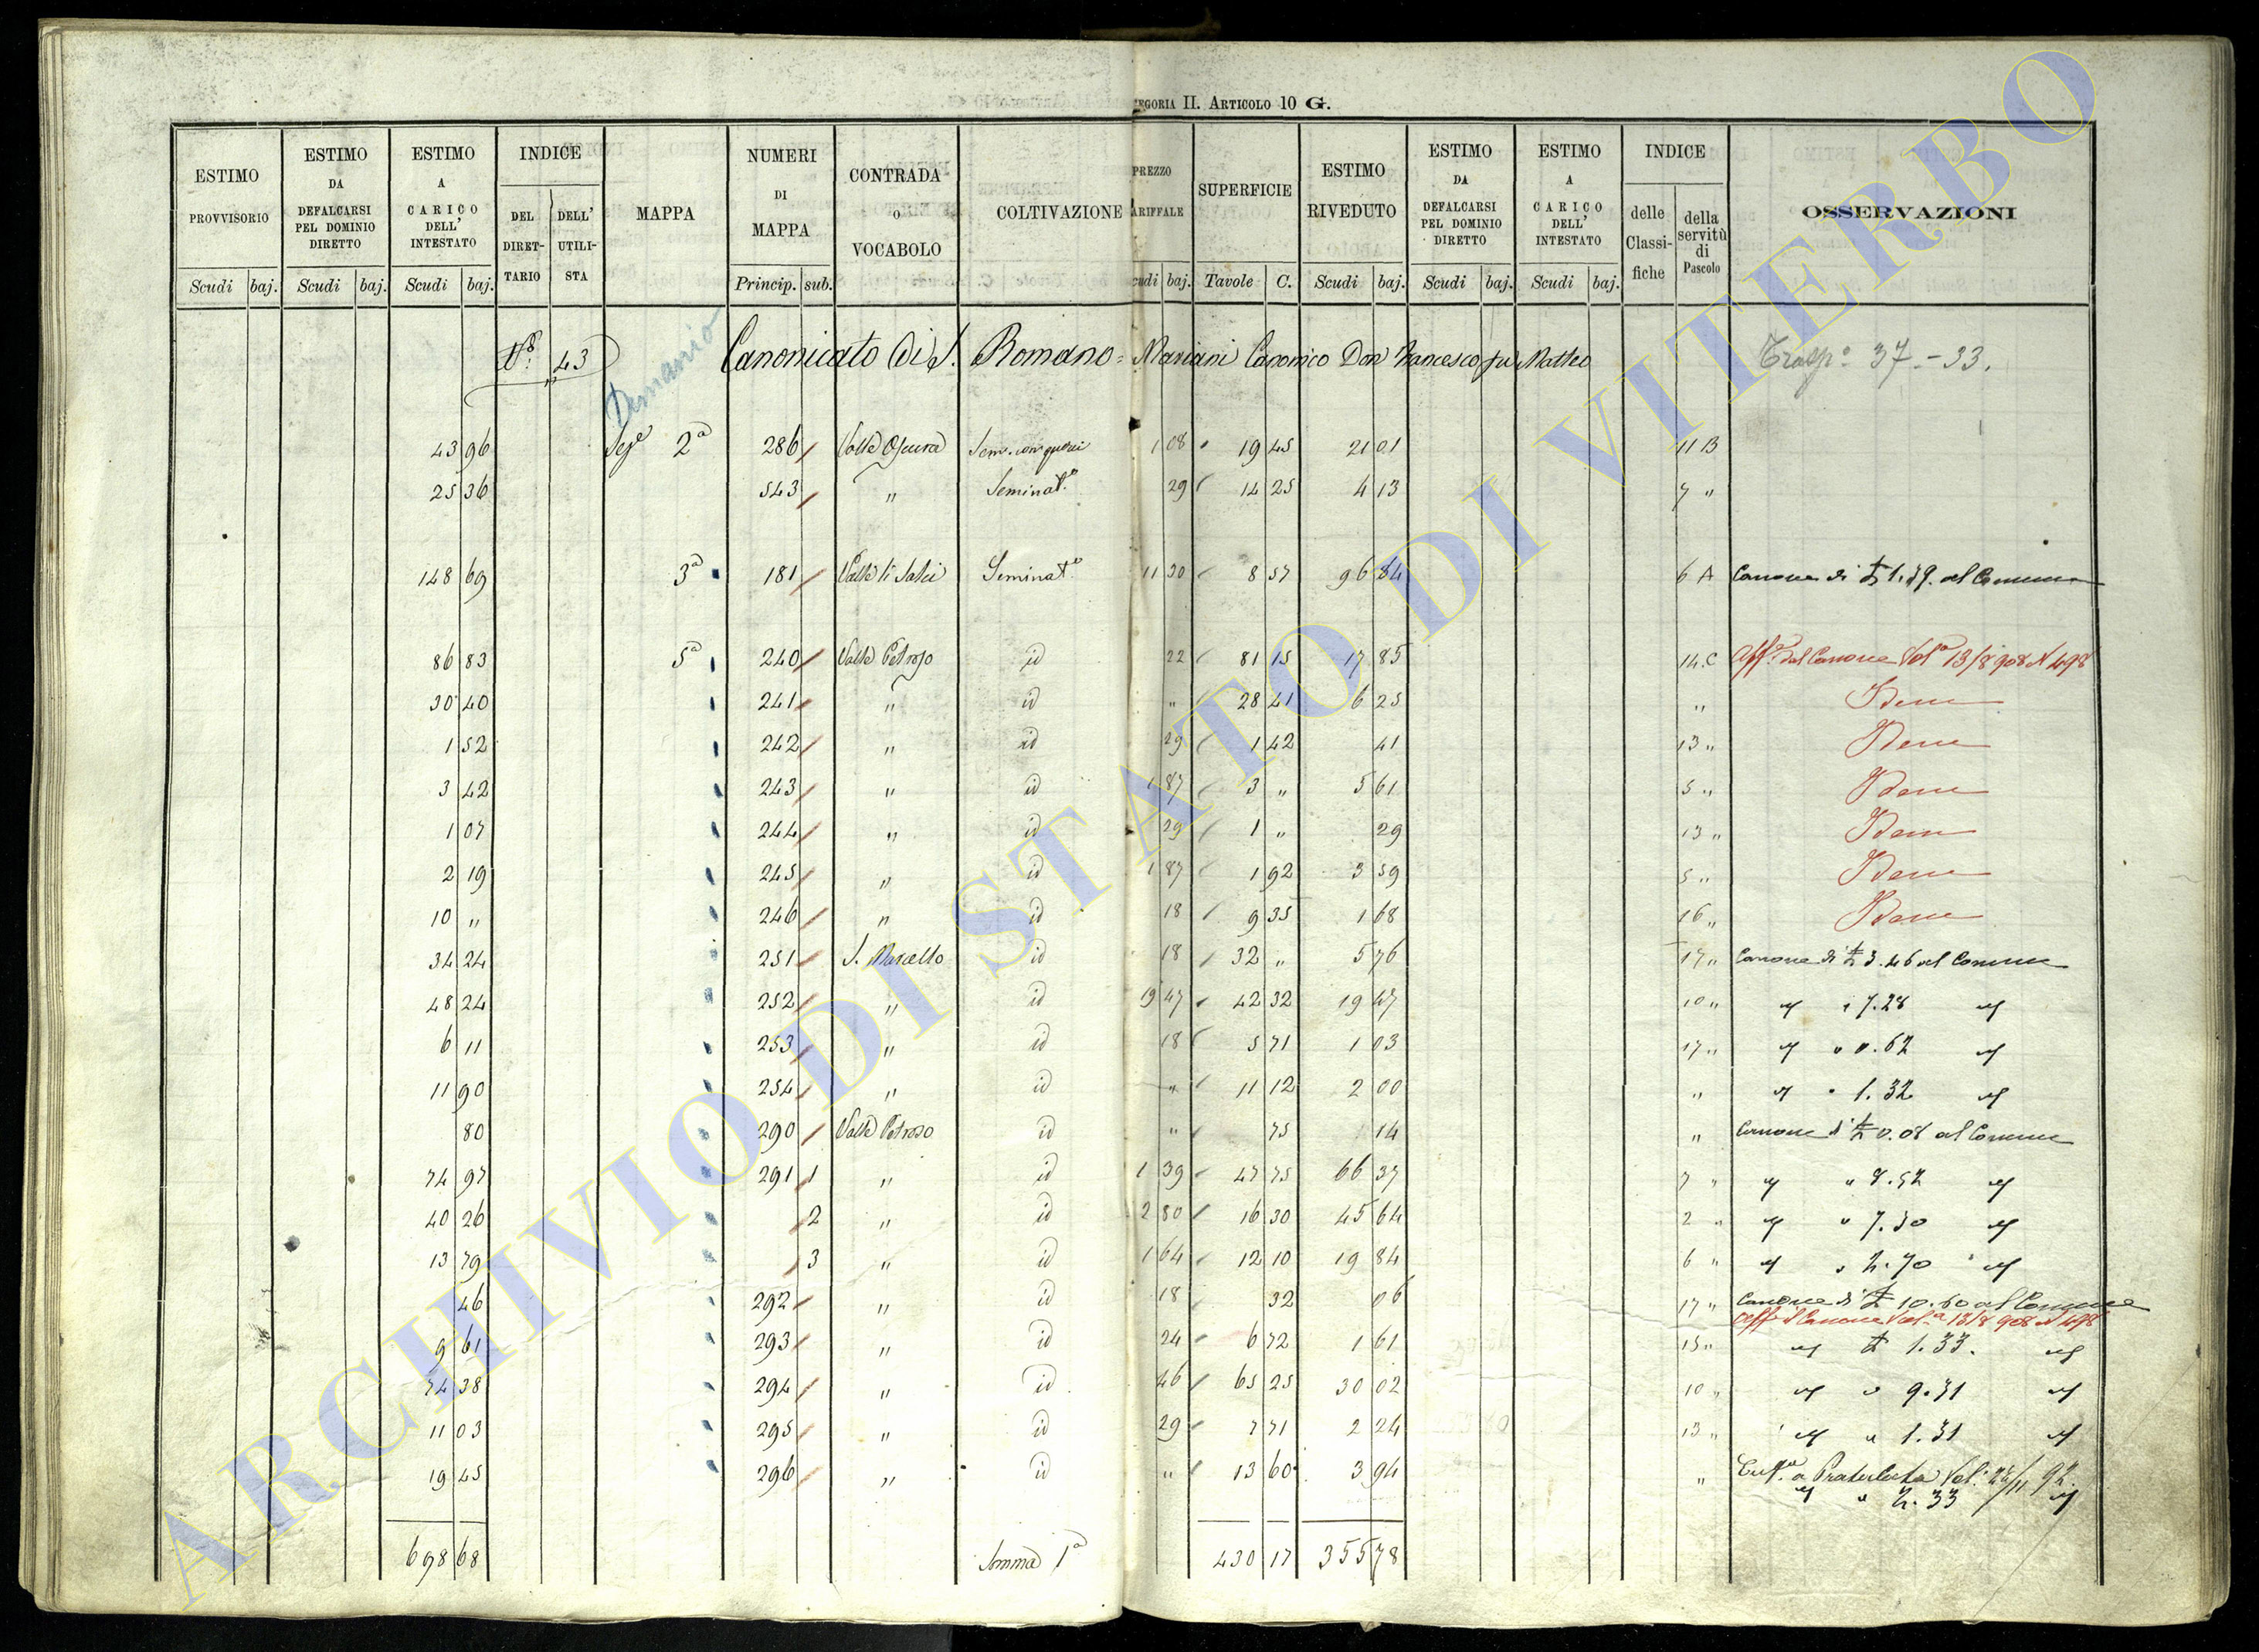 EGORIA II. ARTICOLO 10 G.
ESTIMO PROVVISORIO | ESTIMO DA DEFALCARSI PEL DOMINIO DIRETTO | ESTIMO A CARICO DELL' INTESTATO | INDICE DEL DIRETTARIO | DELL' UTILISTA | MAPPA | NUMERI DI MAPPA | CONTRADA o VOCABOLO | COLTIVAZIONE | PREZZO ARIFFALE | SUPERFICIE | ESTIMO RIVEDUTO | ESTIMO DA DEFALCARSI PEL DOMINIO DIRETTO | ESTIMO A CARICO DELL' INTESTATO | INDICE delle Classifiche | della servitù di Pascolo | OSSERVAZIONI
Scudi baj. Scudi baj. Scudi baj. Princip. sub. cudi baj. Tavole C. Scudi baj. Scudi baj. Scudi baj.
43 Demanio Canonicato di S. Romano = Mariani Canonico Don Francesco fu Matteo Trasp.o 37-33.
43 96 Seze 2a 286 Valle Oscura 1 08 19 45 21 01 11 B
25 36 543 " Seminat.o 29 14 25 4 13 7 "
148 69 3a 181 Valle li Salci Seminat.o 11 30 8 57 96 84 6 A Canone di £ 1.79. al Comune
86 83 5a 240 Valle Petroso id 22 81 15 17 85 14. C Aff.e dal Canone Vol.a 13/8 908 N 498
30 40 241 " id " 28 41 6 25 " Idem
1 52 242 " id 29 1 42 41 13 " Idem
3 42 243 " id 1 87 3 " 5 61 5 " Idem
1 07 244 " id 29 1 " 29 13 " Idem
2 19 245 " id 1 87 1 92 3 59 5 " Idem
10 " 246 " id 18 9 35 1 68 16 " Idem
34 24 251 S. Marcello id 18 32 " 5 76 17 " Canone di £ 3.46 al Comune
48 24 252 " id 19 47 42 32 19 47 10 " " 7.28 "
6 11 253 " id 18 5 71 1 03 17 " " " 0.62 "
11 90 254 " id " 11 12 2 00 " " " 1.32 "
80 290 Valle Petroso id " 75 14 " Canone di £ 0.08 al Comune
74 97 291 1 " id 1 39 47 75 66 37 7 " " " 8.52 "
40 26 2 " id 2 80 16 30 45 64 2 " " " 7.30 "
13 79 3 " id 1 64 12 10 19 84 6 " " " 2.70 "
46 292 " id 18 32 06 17 " Canone di £ 10.60 al Comune
Aff.e il Canone Vol.a 13/8 908 N 498
9 61 293 " id 24 6 72 1 61 15 " " £ 1.33. "
74 38 294 " id 46 65 25 30 02 10 " " " 9.31 "
11 03 295 " id 29 7 71 2 24 13 " " " 1.31 "
19 45 296 " id " 13 60 3 94 " Vol. 26/11 92.
" " 2.33 "
698 68 Somma 1a 430 17 355 78
ARCHIVIO DI STATO DI VITERBO